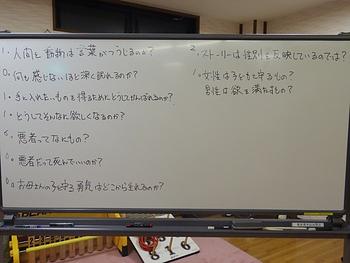 1. 人間と動物は言葉がつうじるのか？
0. 何も感じないほど深く眠れるのか？
1. 手に入れたいものを得るためにどうしてがんばれるのか？
1. どうしてそんなに欲しくなるのか？
6. 悪者ってなにもの？
0. 悪者だって死んでいいのか？
0. お母さんの子を守る勇気はどこから生れるのか？
2. ストーリーは性別を反映しているのでは？
1. 女性は子どもを守るもの？
男性は欲を満たすもの？